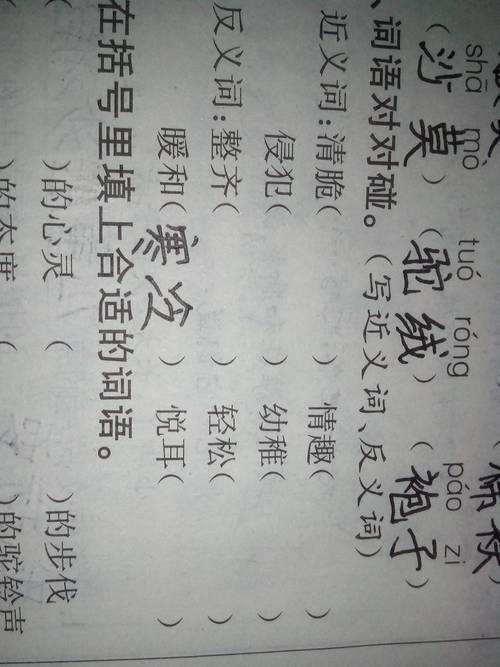 shā mò tuó róng páo zi
(沙莫) (驼绒) (袍子)
、词语对对碰。(写近义词、反义词)
近义词:清脆( ) 情趣( )
侵犯( ) 幼稚( )
反义词:整齐( ) 轻松( )
暖和(寒冷) 悦耳( )
在括号里填上合适的词语。
( )的心灵 ( )的步伐
( )的态度 ( )的驼铃声